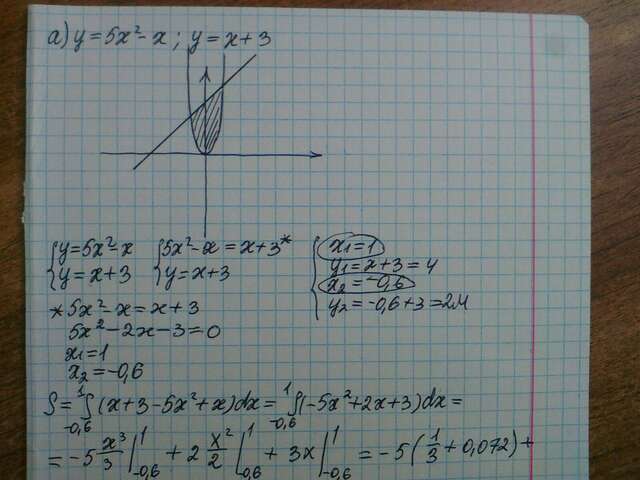 а) y = 5x² - x ; y = x + 3
{y = 5x² - x {5x² - x = x + 3* {x₁ = 1
{y = x + 3 {y = x + 3 y₁ = x + 3 = 4
x₂ = -0,6
y₂ = -0,6 + 3 = 2,4
* 5x² - x = x + 3
5x² - 2x - 3 = 0
x₁ = 1
x₂ = -0,6
S = ∫₋₀,₆¹ (x + 3 - 5x² + x)dx = ∫₋₀,₆¹ (-5x² + 2x + 3)dx =
= -5 x³/3 |₋₀,₆¹ + 2 x²/2 |₋₀,₆¹ + 3x |₋₀,₆¹ = -5(1/3 + 0,072) +